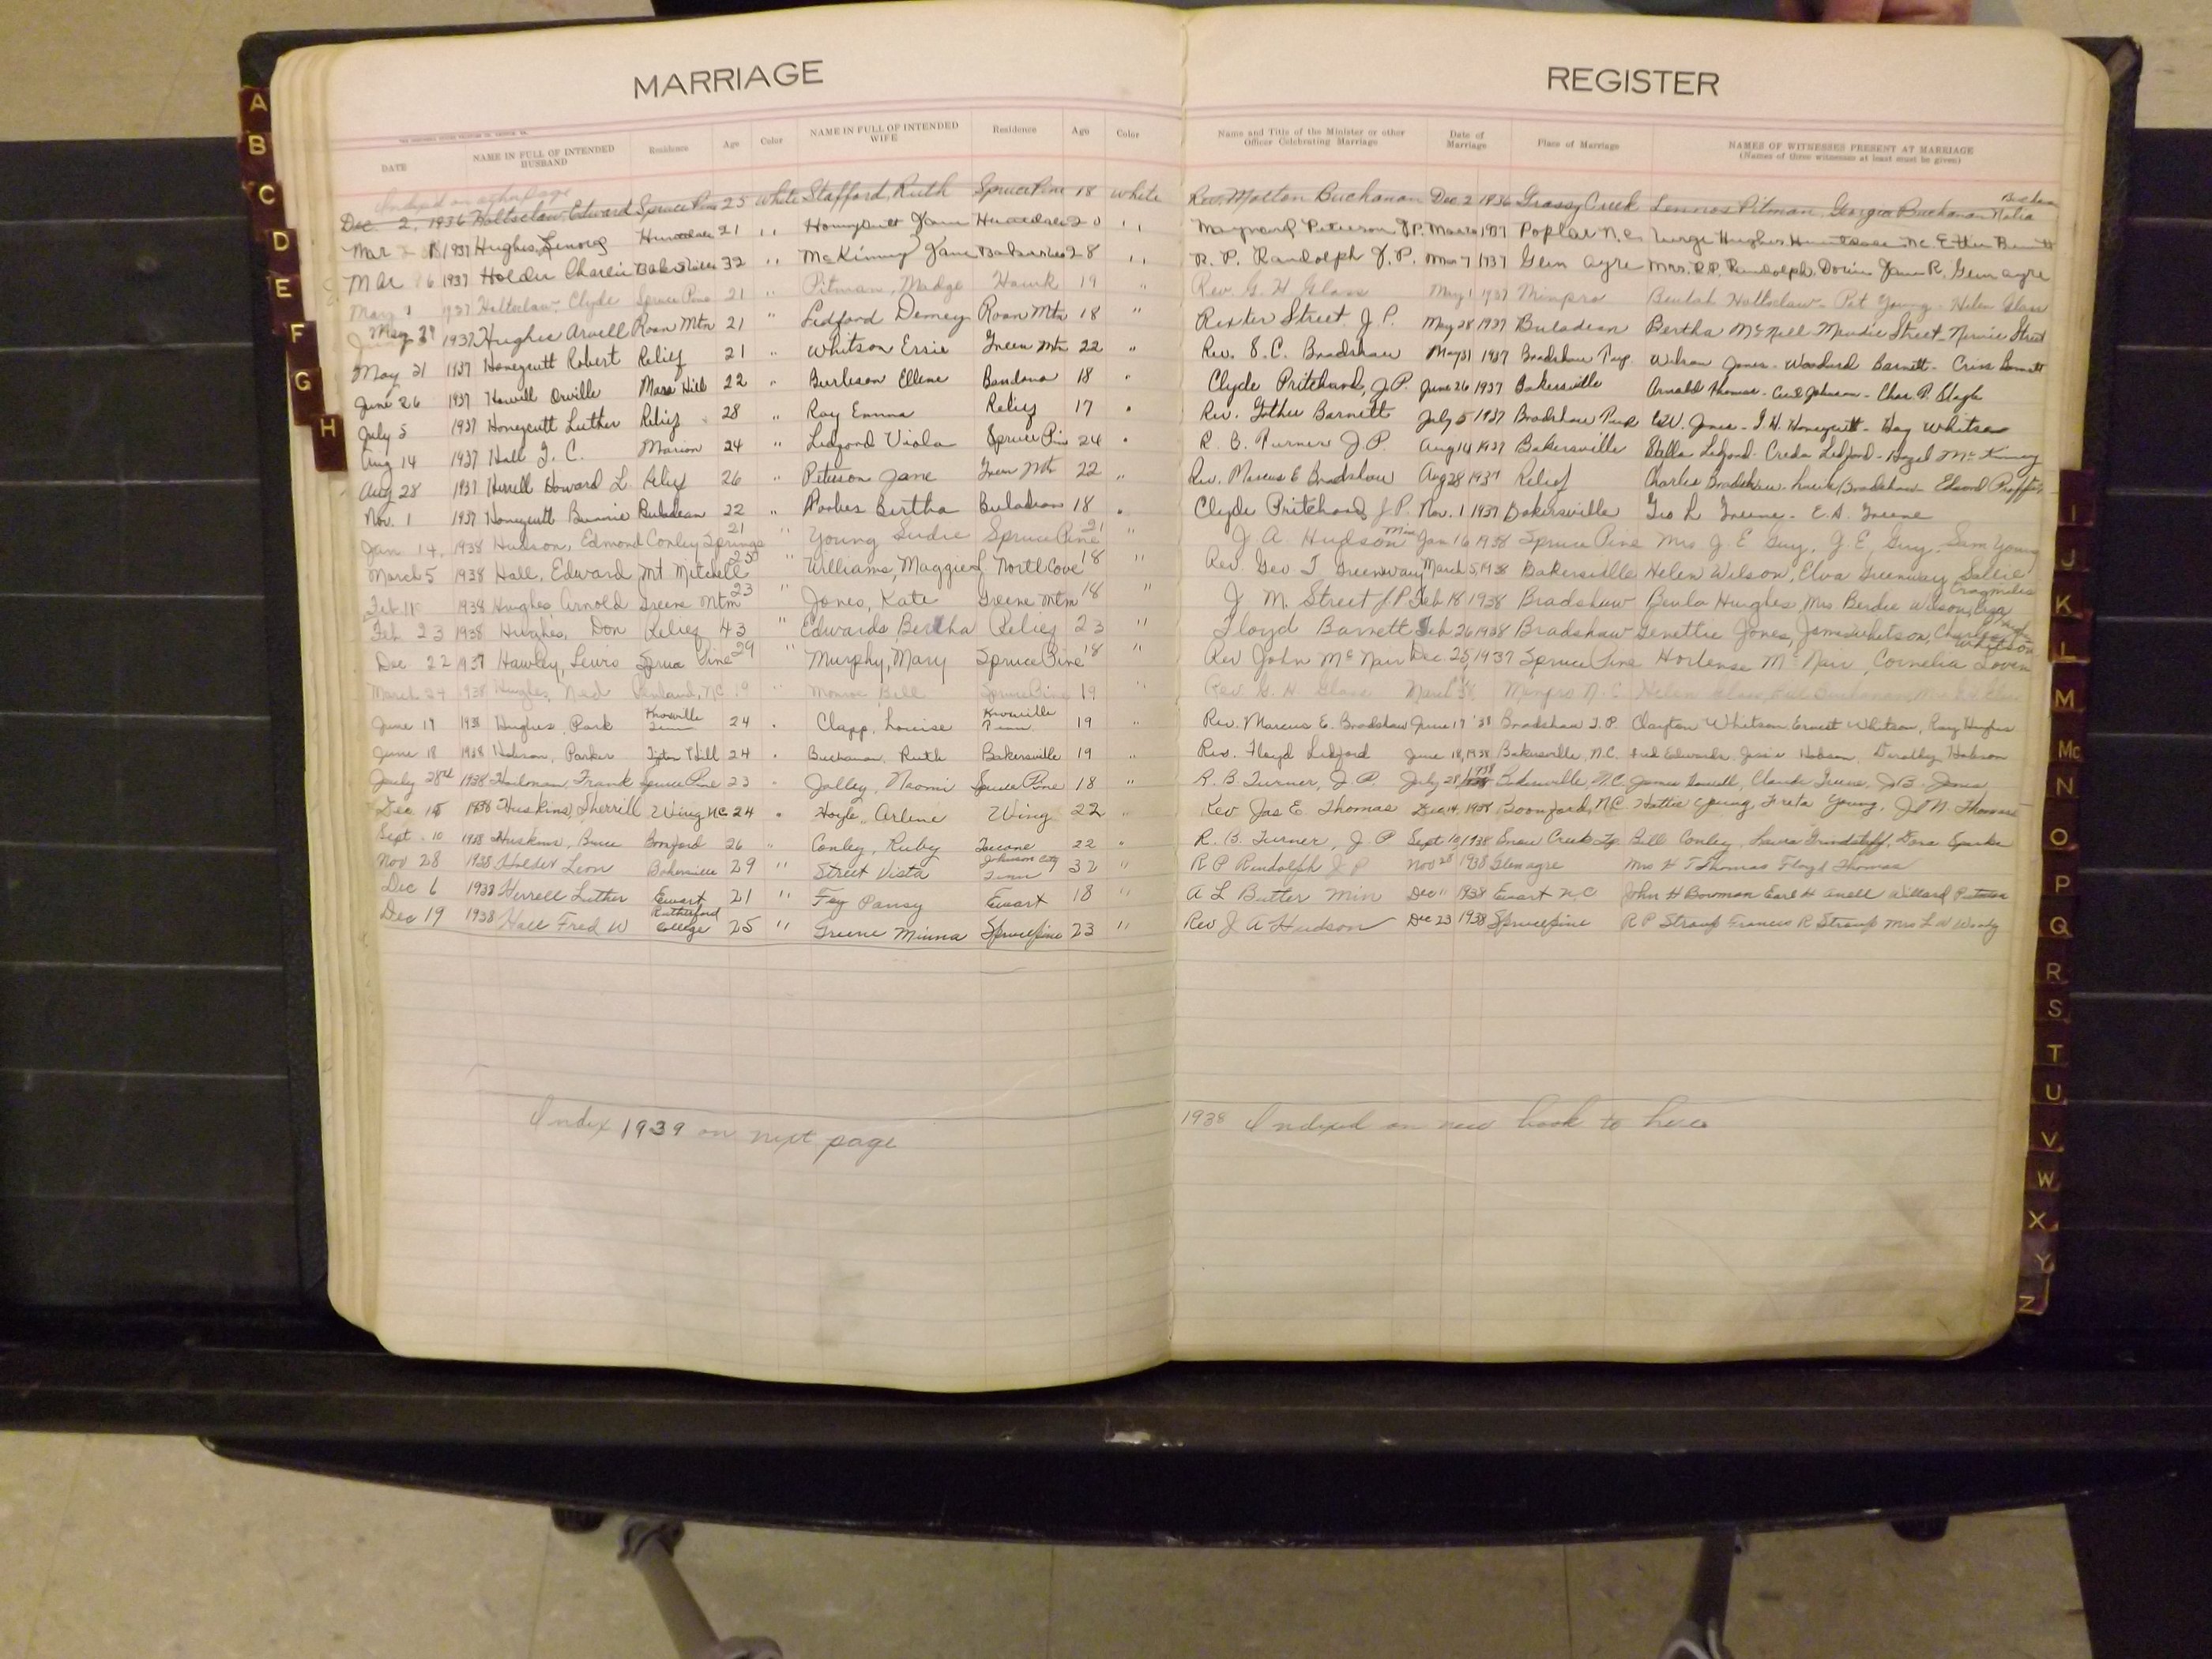 MARRIAGE REGISTER
DATE NAME IN FULL OF INTENDED HUSBAND Residence Age Color NAME IN FULL OF INTENDED WIFE Residence Age Color Name and Title of the Minister or other Officer Celebrating Marriage Date of Marriage Place of Marriage NAMES OF WITNESSES PRESENT AT MARRIAGE (Names of three witnesses at least must be given)
Indexed on other page
Dec. 2, 1936 Holtsclaw, Edward Spruce Pine 25 White Stafford, Ruth Spruce Pine 18 White Rev. Molton Buchanan Dec 2 1936 Grassy Creek Lennos Pitman, Georgia Buchanan
Mar 1937 Hughes, 21 " 20 " Maynard Peterson J.P. 1937 Poplar N.C. Hughes
Mar 6 1937 Holder Charlie Bakersville 32 " McKinney Jane Bakersville 28 " R. P. Randolph J.P. Mar 7 1937 Glen ayre Mrs. R.P. Randolph, Glen ayre
May 1 1937 Holtsclaw, Clyde Spruce Pine 21 " Pitman, Madge Hawk 19 Rev. G. H Glass May 1 1937 Minpro Beulah Holtsclaw - Pat Young - Helen Glass
May 28 1937 Hughes Arvell Roan Mtn 21 " Ledford Demey Roan Mtn 18 " Rexter Street, J.P. May 28 1937 Buladean Bertha McNeil - Maudie Street - Street
May 31 1937 Honeycutt Robert Relief 21 " Whitson Essie Green Mtn 22 " Rev. S.C. Bradshaw May 31 1937 Bradshaw Twp. Wilson Jones - Woodard Barnett -
June 26 1937 Howell Orville Mars Hill 22 " Burleson Ellene Bandana 18 " Clyde Pritchard, J.P. June 26 1937 Bakersville Arnold Thomas - Cecil Johnson - Chas. P. Slagle
July 5 1937 Honeycutt Luther Relief 28 " Ray Emma Relief 17 " Rev. Gother Barnett July 5 1937 Bradshaw Twp W. Jones - J. H. Honeycutt - Whitson
Aug 14 1937 Hall J. C. Marion 24 " Ledford Viola Spruce Pine 24 " R. B. Turner J.P. Aug 14 1937 Bakersville Stella Ledford - Creda Ledford - Hazel McKinney
Aug 28 1937 Herrell Howard L. Relief 26 " Peterson Jane Green Mtn 22 " Rev. Marcus E Bradshaw Aug 28 1937 Relief Charles Bradshaw - Bradshaw - Edward Proffitt
Nov. 1 1937 Honeycutt Bunnie Buladean 22 " Forbes Bertha Buladean 18 " Clyde Pritchard J.P. Nov. 1 1937 Bakersville Geo L Greene - E. A. Greene
Jan 14, 1938 Hudson, Edmond Conley Springs 21 " Young Sudie Spruce Pine 21 " J. A. Hudson Min Jan 16 1938 Spruce Pine Mrs J. E Guy, J. E. Guy, Sam Young
March 5 1938 Hall, Edward Mt Mitchell 25 " Williams, Maggie North Cove 18 " Rev. Geo T. Greenway March 5, 1938 Bakersville Helen Wilson, Elva Greenway Sallie
Feb. 11 1938 Hughes Arnold Greene Mtn 23 " Jones, Kate Greene Mtn 18 " J. M. Street J.P. Feb 18 1938 Bradshaw Beula Hughes, Mrs Berdie Wilson,
Feb 23 1938 Hughes, Don Relief 43 " Edwards Bertha Relief 23 " Floyd Barnett Feb 26 1938 Bradshaw Genettie Jones, James Whitson,
Dec 22 1937 Hawley, Lewis Spruce Pine 29 " Murphy, Mary Spruce Pine 18 " Rev John McNair Dec. 25, 1937 Spruce Pine Hortense McNair, Cornelia Loven
March 24 1938 Hughes, Ned Penland, NC 19 " Monroe Bill Spruce Pine 19 " Rev G. H. Glass March Minpro N.C. Helen Glass,
June 17 1938 Hughes, Park Knoxville Tenn 24 " Clapp, Louise Knoxville Tenn 19 " Rev. Marcus E. Bradshaw June 17 '38 Bradshaw T.P. Clayton Whitson, Ernest Whitson, Ray Hughes
June 18 1938 Hobson, Parker Tipton Hill 24 " Buchanan, Ruth Bakersville 19 " Rev. Floyd Ledford June 18, 1938 Bakersville, N.C. Edwards, Jessie Hobson, Dorothy Hobson
July 28th 1938 Frank Spruce Pine 23 " Jolley, Naomi Spruce Pine 18 " R. B Turner, J.P. July 28, 1938 Bakersville, N.C. James Howell, Claude Greene, J. B. Jones
Dec 1938 Huskins, Sherrill Wing NC 24 " Hoyle, Arlene Wing 22 " Rev Jas E. Thomas Dec 14, 1938 Boonford, N.C. Hattie Young, Freta Young, J. M. Thomas
Sept. 10 1938 Huskins, Bruce Boonford 26 " Conley, Ruby Toecane 22 " R. B. Turner, J P Sept 10, 1938 Snow Creek Tp. Bill Conley, Laura Grindstaff, Dora Sparks
Nov 28 1938 Holder Leon Bakersville 29 " Street Vista Johnson City Tenn 32 " R P Randolph J P Nov 28 1938 Glenayre Mrs H T Thomas Floyd Thomas
Dec 6 1938 Herrell Luther Ewart 21 " Foy Pansy Ewart 18 " A L Butter Min Dec 11 1938 Ewart N.C John H Bowman Earl H Willard
Dec 19 1938 Hall Fred W Rutherford College 25 " Greene Minna Sprucepine 23 " Rev J A Hudson Dec 23 1938 Sprucepine R P Stroup Francis R Stroup Mrs L W Woody
Index 1939 on next page
1938 Indexed on new book to here
A
B
C
D
E
F
G
H
I
J
K
L
M
Mc
N
O
P
Q
R
S
T
U
V
W
X
Y
Z